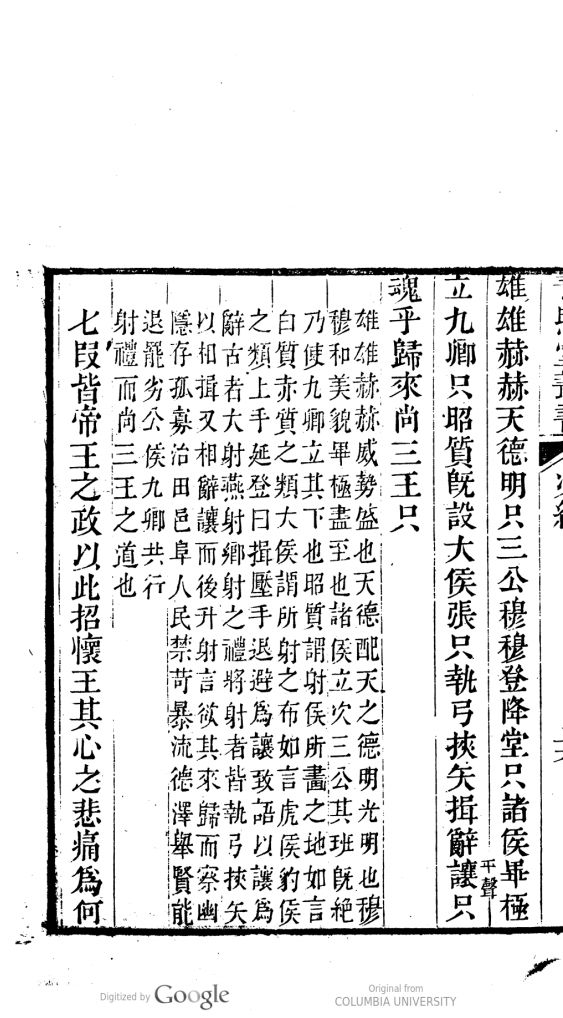 雄雄赫赫天德明只三公穆穆登降堂只諸侯畢極
立九卿只昭質旣設大侯張只執弓挾矢揖辭讓平聲只
魂乎歸來尚三王只
雄雄赫赫威勢盛也天德配天之德明光明也穆
穆和美貌畢極盡至也諸侯立次三公其班旣絕
乃使九卿立其下也昭質謂射侯所畫之地如言
白質赤質之類大侯謂所射之布如言虎侯豹侯
之類上手延登曰揖壓手退避爲讓致語以讓爲
辭古者大射燕射鄉射之禮將射者皆執弓挾矢
以相揖又相辭讓而後升射言欲其來歸而察幽
隱存孤寡治田邑阜人民禁苛暴流德澤舉賢能
退罷劣公侯九卿共行
射禮而尚三王之道也
七段皆帝王之政以此招懷王其心之悲痛爲何
Digitized by Google
Original from
COLUMBIA UNIVERSITY